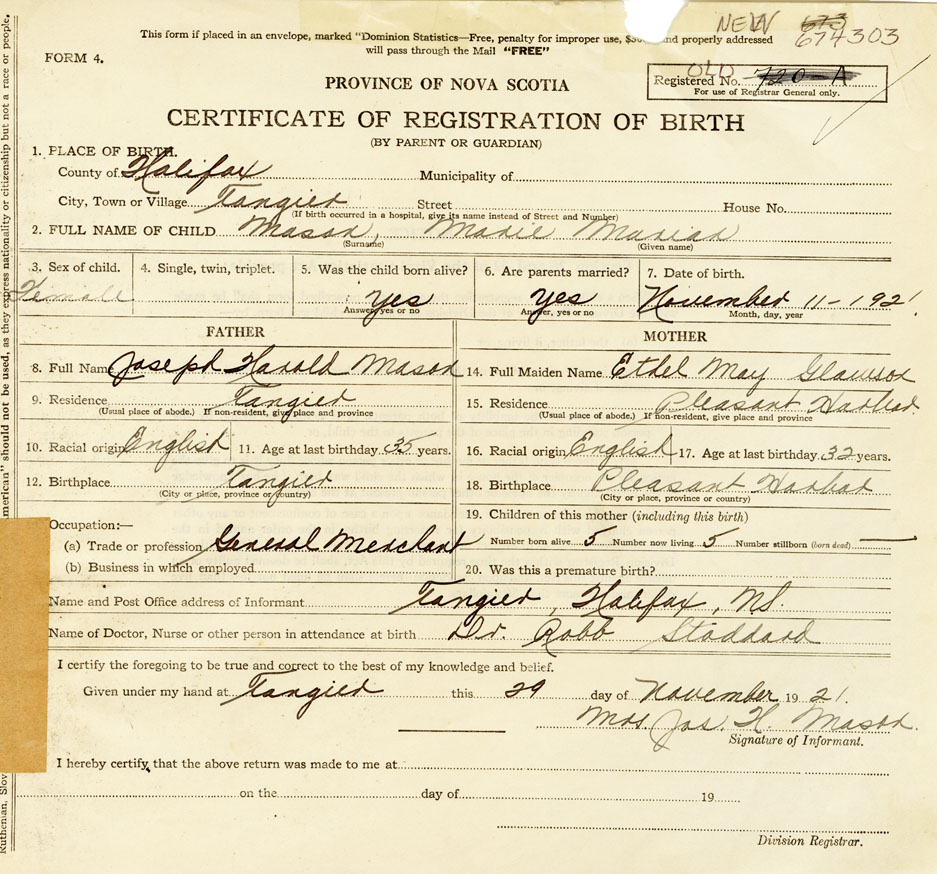 This form if placed in an envelope, marked "Dominion Statistics—Free, penalty for improper use, $30 and properly addressed
will pass through the Mail "FREE"
NEW 674303
FORM 4.
OLD
Registered No. 720-A
For use of Registrar General only.
PROVINCE OF NOVA SCOTIA
CERTIFICATE OF REGISTRATION OF BIRTH
(BY PARENT OR GUARDIAN)
1. PLACE OF BIRTH.
County of Halifax Municipality of
City, Town or Village Tangier Street House No.
(If birth occurred in a hospital, give its name instead of Street and Number)
2. FULL NAME OF CHILD Mason, Marie Marian
(Surname) (Given name)
3. Sex of child. 4. Single, twin, triplet. 5. Was the child born alive? 6. Are parents married? 7. Date of birth.
Female Yes Yes November 11-1921
Answer, yes or no Answer, yes or no Month, day, year
FATHER MOTHER
8. Full Name Joseph Harold Mason 14. Full Maiden Name Ethel May
9. Residence Tangier 15. Residence Pleasant Harbor
(Usual place of abode.) If non-resident, give place and province (Usual place of abode.) If non-resident, give place and province
10. Racial origin English 11. Age at last birthday 35 years. 16. Racial origin English 17. Age at last birthday 32 years.
12. Birthplace Tangier 18. Birthplace Pleasant Harbor
(City or place, province or country) (City or place, province or country)
19. Children of this mother (including this birth)
Occupation:—
(a) Trade or profession General Merchant Number born alive 5 Number now living 5 Number stillborn (born dead) —
(b) Business in which employed 20. Was this a premature birth?
Name and Post Office address of Informant Tangier, Halifax, N.S.
Name of Doctor, Nurse or other person in attendance at birth Dr. Robb Stoddard
I certify the foregoing to be true and correct to the best of my knowledge and belief.
Given under my hand at Tangier this 29 day of November 1921.
Mrs. Jos. H. Mason.
Signature of Informant.
I hereby certify, that the above return was made to me at
on the day of 19
Division Registrar.
American" should not be used, as they express nationality or citizenship but not a race or people.
Ruthenian, Slov